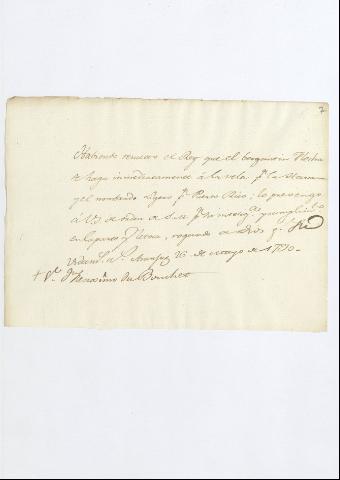 7
Habiendo resuelto el Rey que el bergantin Flecha
se haga inmediatamente à la vela pa. la Havana
y el nombrado Ligero pa. Puerto Rico; lo prevengo
à VS de orden de S.M. pa. su intelga. y cumplimto.
en la parte q. le toca, rogando a Dios ge. su
vida ms. as. Aranjuez 26 de mayo de 1790.
Sr. Dn. Geronimo de Bouchet